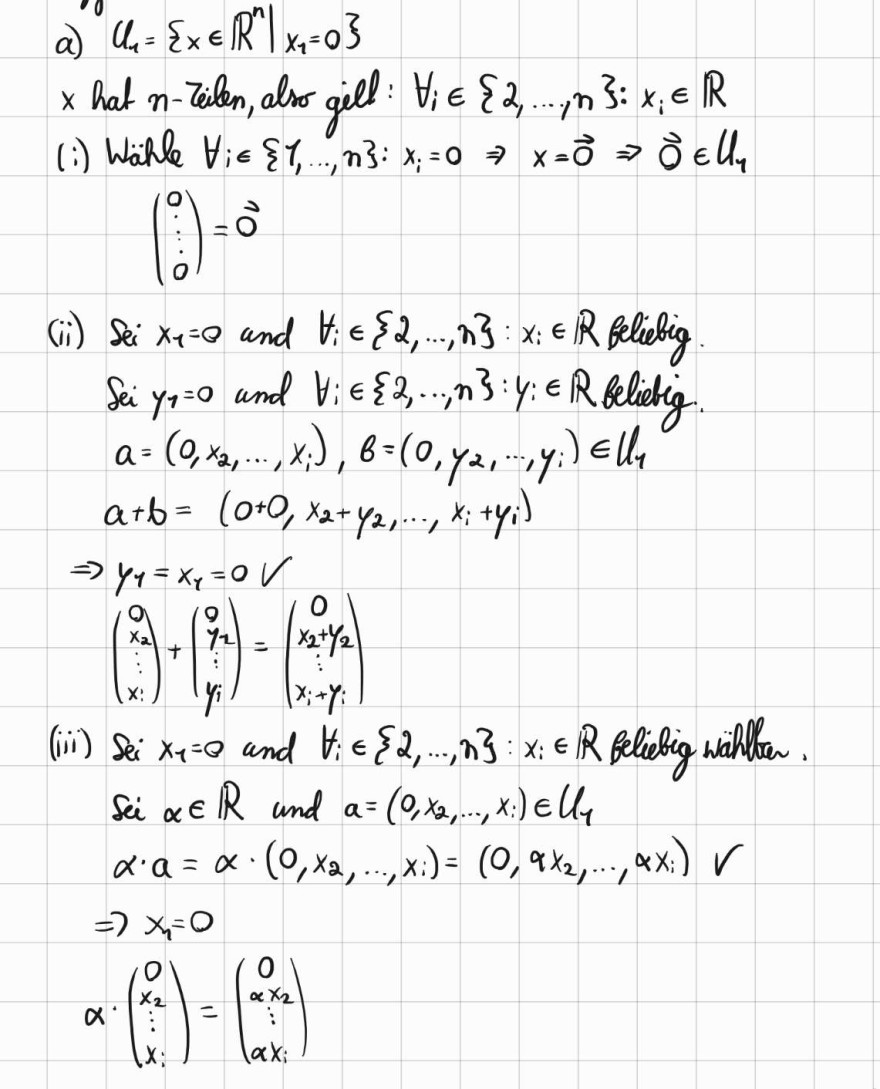 a) U₁ = {x ∈ ℝⁿ | x₁=0}
x hat n-Zeilen, also gilt: ∀i ∈ {2,...,n}: xᵢ ∈ ℝ
(i) Wähle ∀i ∈ {1,...,n}: xᵢ=0 ⇒ x=0⃗ ⇒ 0⃗ ∈ U₁
(0 ⋮ 0) = 0⃗
(ii) Sei x₁=0 und ∀i ∈ {2,...,n} : xᵢ ∈ ℝ beliebig.
Sei y₁=0 und ∀i ∈ {2,...,n} : yᵢ ∈ ℝ beliebig.
a = (0, x₂, ..., xᵢ), b = (0, y₂, ..., yᵢ) ∈ U₁
a+b = (0+0, x₂+y₂, ..., xᵢ+yᵢ)
⇒ y₁ = x₁ = 0 ✓
(0 x₂ ⋮ xᵢ) + (0 y₂ ⋮ yᵢ) = (0 x₂+y₂ ⋮ xᵢ+yᵢ)
(iii) Sei x₁=0 und ∀i ∈ {2,...,n} : xᵢ ∈ ℝ beliebig wählbar.
Sei α ∈ ℝ und a = (0, x₂, ..., xᵢ) ∈ U₁
α·a = α · (0, x₂, ..., xᵢ) = (0, αx₂, ..., αxᵢ) ✓
⇒ x₁=0
α · (0 x₂ ⋮ xᵢ) = (0 αx₂ ⋮ αxᵢ)